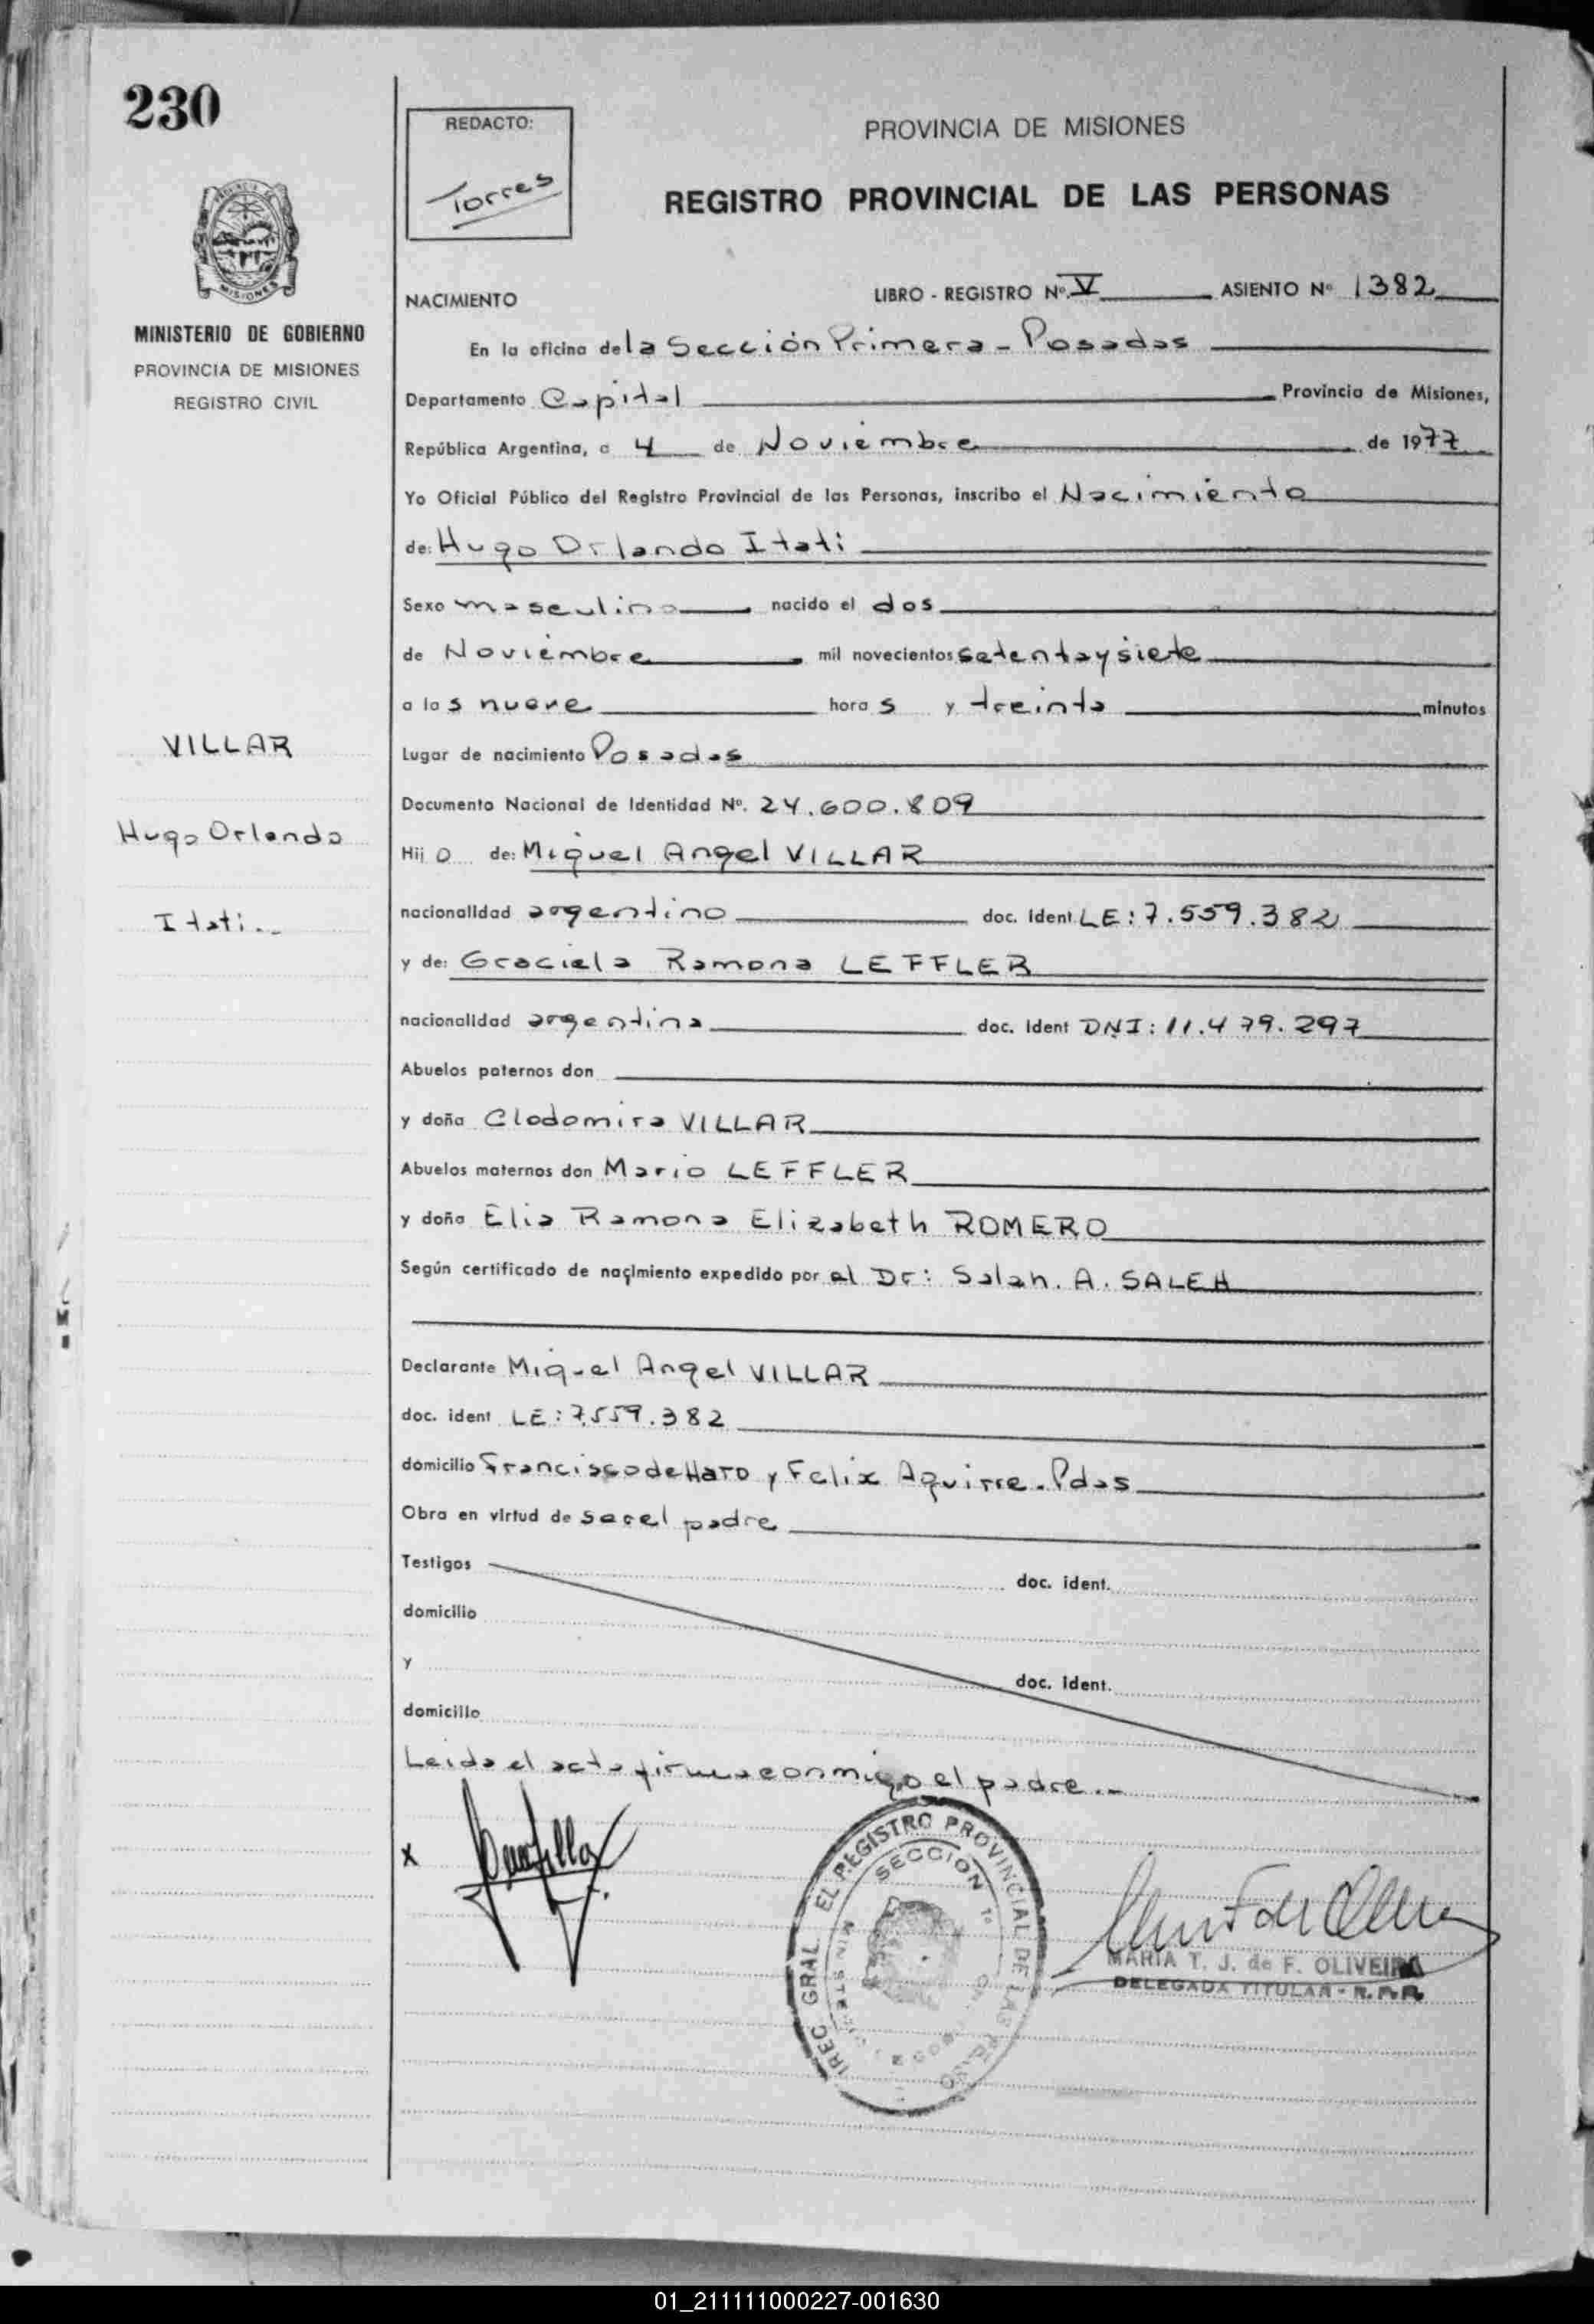 230
REDACTO:
Torres
PROVINCIA DE MISIONES
REGISTRO PROVINCIAL DE LAS PERSONAS
MISIONES
MINISTERIO DE GOBIERNO
PROVINCIA DE MISIONES
REGISTRO CIVIL
NACIMIENTO
LIBRO - REGISTRO Nº. V ASIENTO Nº 1382
En la oficina de la Sección Primera - Posadas
Departamento Capital Provincia de Misiones,
República Argentina, a 4 de Noviembre de 1977
Yo Oficial Público del Registro Provincial de las Personas, inscribo el Nacimiento
de: Hugo Orlando Itati
Sexo masculino nacido el dos
de Noviembre mil novecientos setenta y siete
a las nueve horas y treinta minutos
VILLAR
Hugo Orlando
Itati.-
Lugar de nacimiento Posadas
Documento Nacional de Identidad Nº. 24.600.809
Hijo de: Miguel Angel VILLAR
nacionalidad argentino doc. Ident. LE: 7.559.382
y de: Graciela Ramona LEFFLER
nacionalidad argentina doc. Ident DNI: 11.479.297
Abuelos paternos don
y doña Clodomira VILLAR
Abuelos maternos don Mario LEFFLER
y doña Elia Ramona Elizabeth ROMERO
Según certificado de nacimiento expedido por el Dr: Salah. A. SALEH
Declarante Miguel Angel VILLAR
doc. ident LE: 7.559.382
domicilio Francisco de Haro y Felix Aguirre. Pdas
Obra en virtud de ser el padre
Testigos doc. ident.
domicilio
y doc. ident.
domicilio
Leida el acta firma conmigo el padre.-
x
EL REGISTRO PROVINCIAL DE LAS
SECCION 1ª
GRAL
MARIA T. J. de F. OLIVEIRA
DELEGADA TITULAR - R.P.P.
01_211111000227-001630